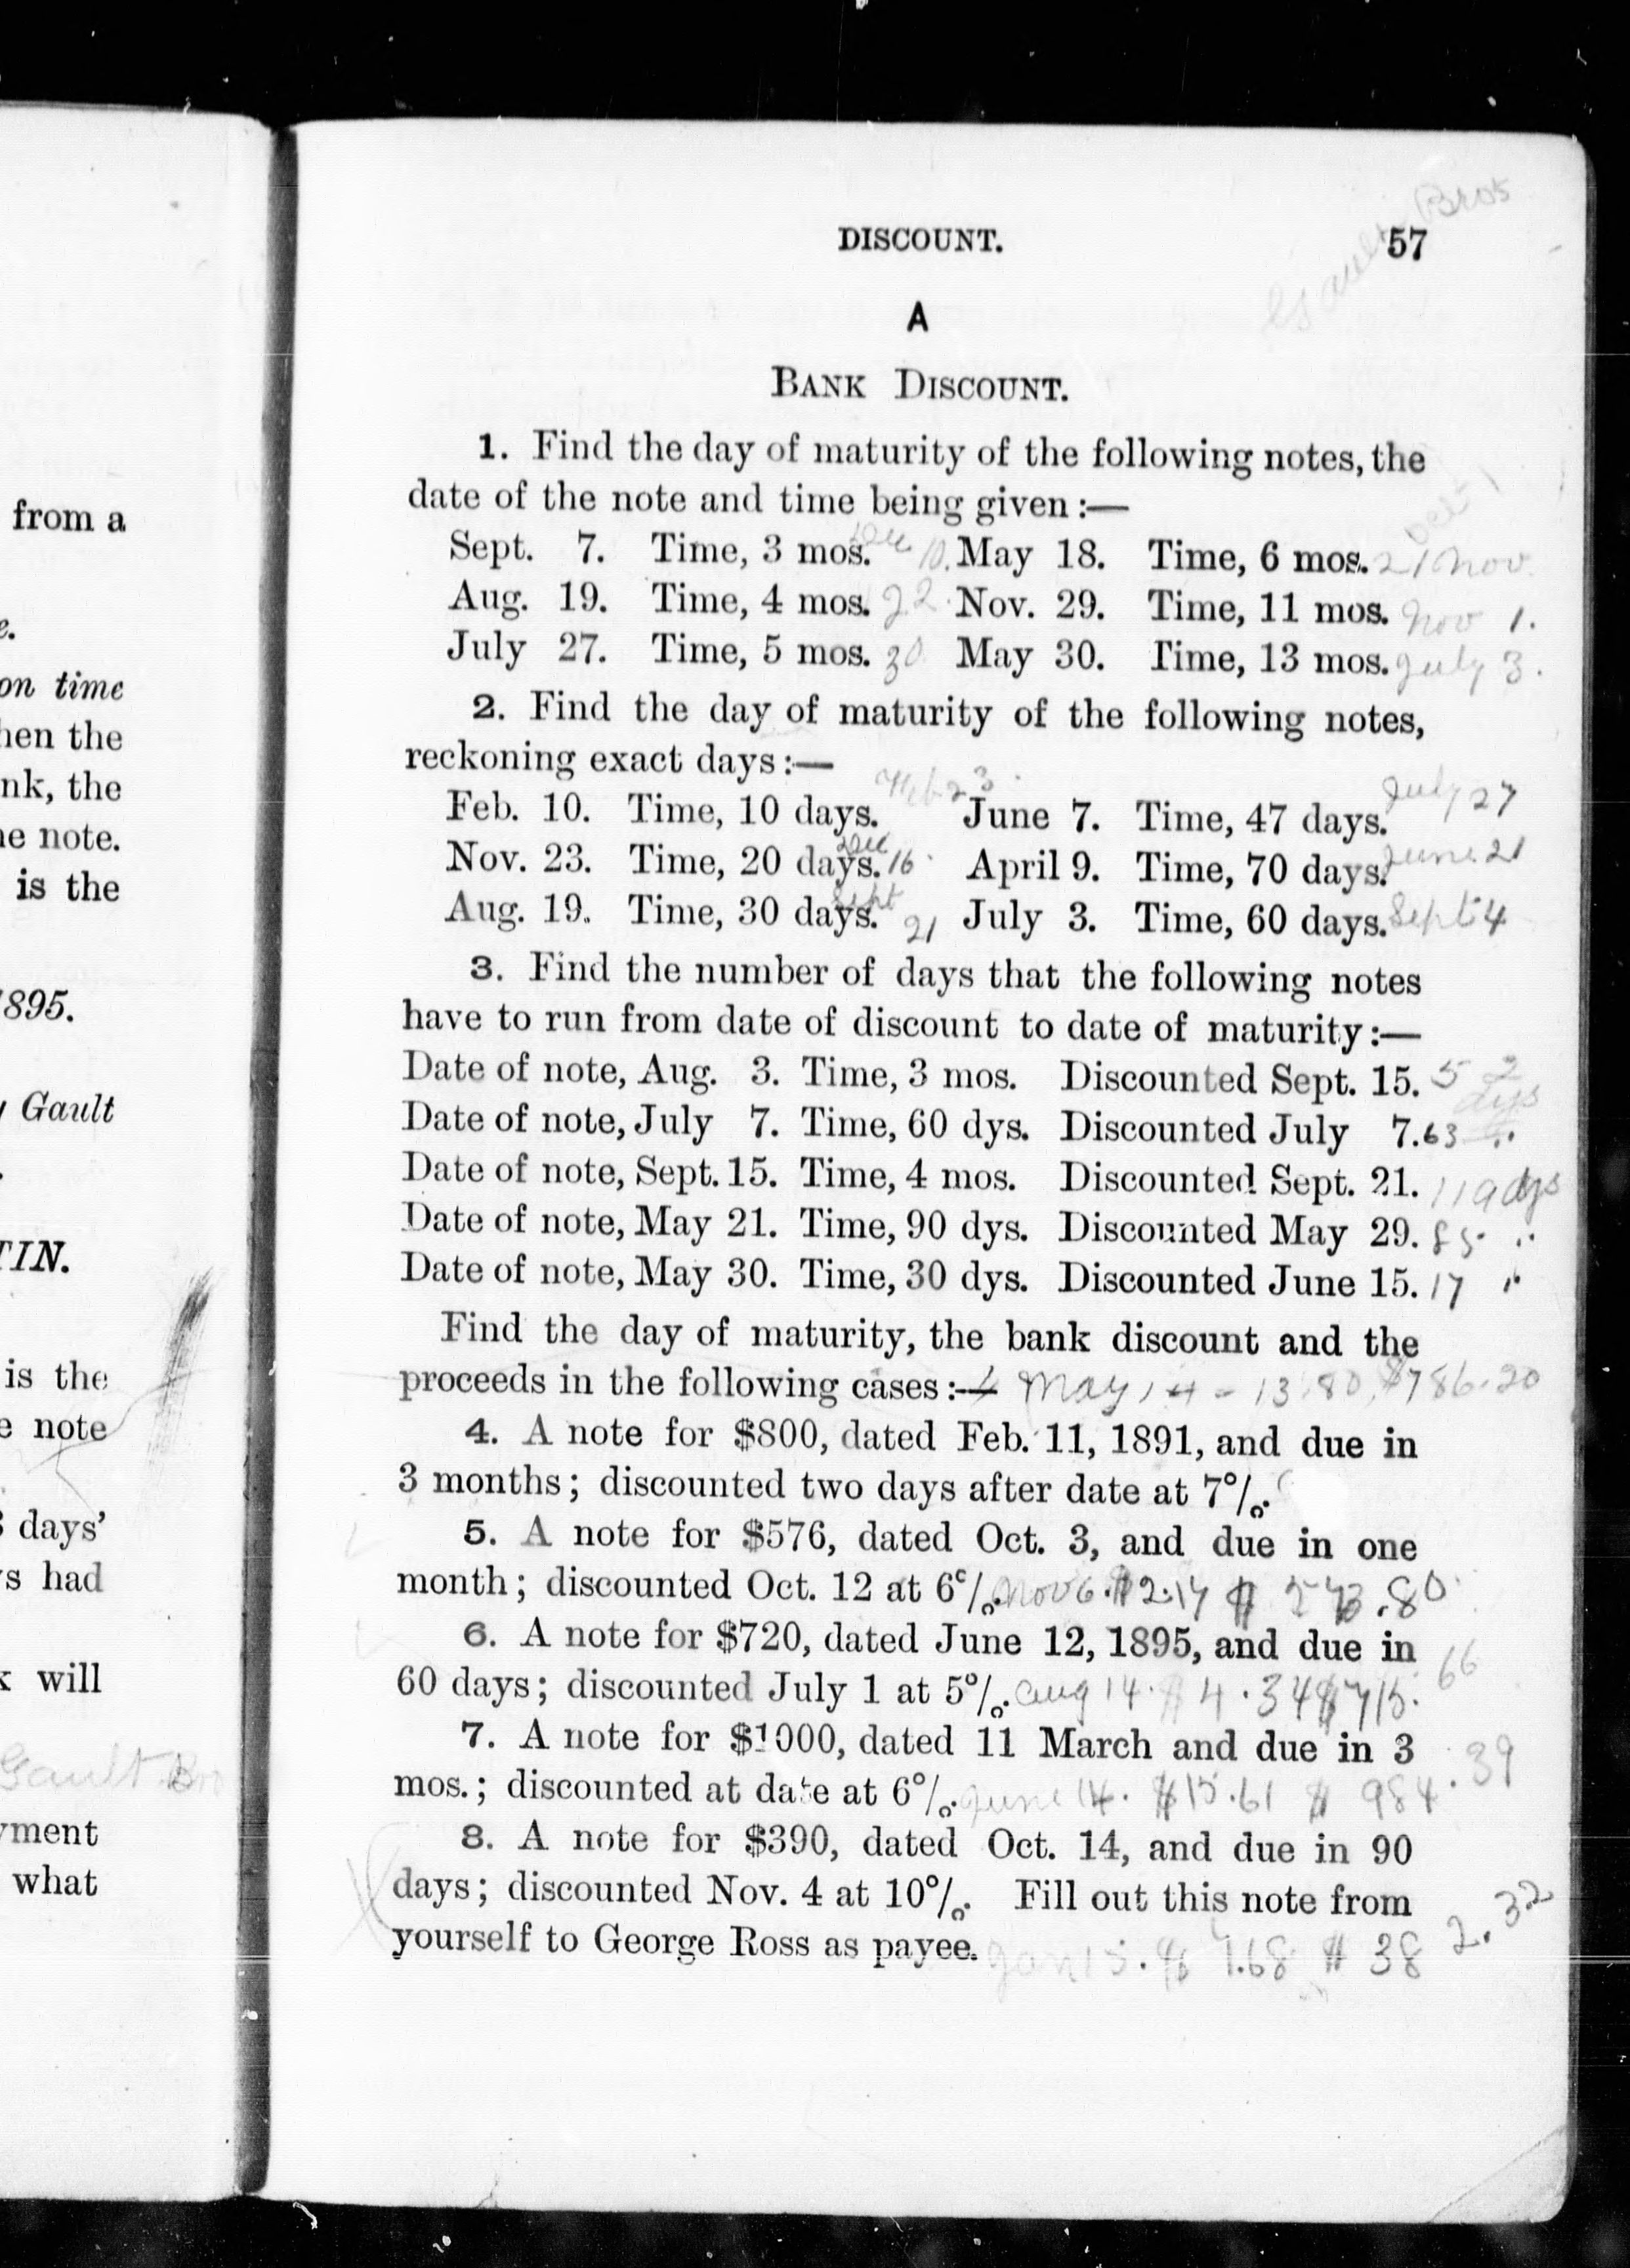 from a
e.
on time
hen the
nk, the
he note.
is the
1895.
y Gault
TIN.
is the
e note
3 days'
s had
k will
Gault Bro
yment
what
Gault Bros
DISCOUNT. 57
A
BANK DISCOUNT.
1. Find the day of maturity of the following notes, the
date of the note and time being given :—
Oct 1
Sept. 7. Time, 3 mos. Dec 10. May 18. Time, 6 mos. 21 Nov.
Aug. 19. Time, 4 mos. 22. Nov. 29. Time, 11 mos. Nov 1.
July 27. Time, 5 mos. 30 May 30. Time, 13 mos. July 3.
2. Find the day of maturity of the following notes,
reckoning exact days :—
Feb. 10. Time, 10 days. Feb 23. June 7. Time, 47 days. July 27
Nov. 23. Time, 20 days. Dec 16. April 9. Time, 70 days. June 21
Aug. 19. Time, 30 days. Sept 21 July 3. Time, 60 days. Sept 4
3. Find the number of days that the following notes
have to run from date of discount to date of maturity :—
Date of note, Aug. 3. Time, 3 mos. Discounted Sept. 15. 52 dys
Date of note, July 7. Time, 60 dys. Discounted July 7. 63 "
Date of note, Sept. 15. Time, 4 mos. Discounted Sept. 21. 119 dys
Date of note, May 21. Time, 90 dys. Discounted May 29. 85 "
Date of note, May 30. Time, 30 dys. Discounted June 15. 17 "
Find the day of maturity, the bank discount and the
proceeds in the following cases :— May 14 - 13.80, $786.20
4. A note for $800, dated Feb. 11, 1891, and due in
3 months ; discounted two days after date at 7%.
5. A note for $576, dated Oct. 3, and due in one
month ; discounted Oct. 12 at 6%. Nov 6. $2.17 $ 573.80
6. A note for $720, dated June 12, 1895, and due in
60 days ; discounted July 1 at 5%. Aug 14. $4.34 $715.66
7. A note for $1000, dated 11 March and due in 3
mos. ; discounted at date at 6%. June 14. $15.61 $ 984.39
8. A note for $390, dated Oct. 14, and due in 90
days ; discounted Nov. 4 at 10%. Fill out this note from
yourself to George Ross as payee. Jan 15. $ 7.68 $ 382.32